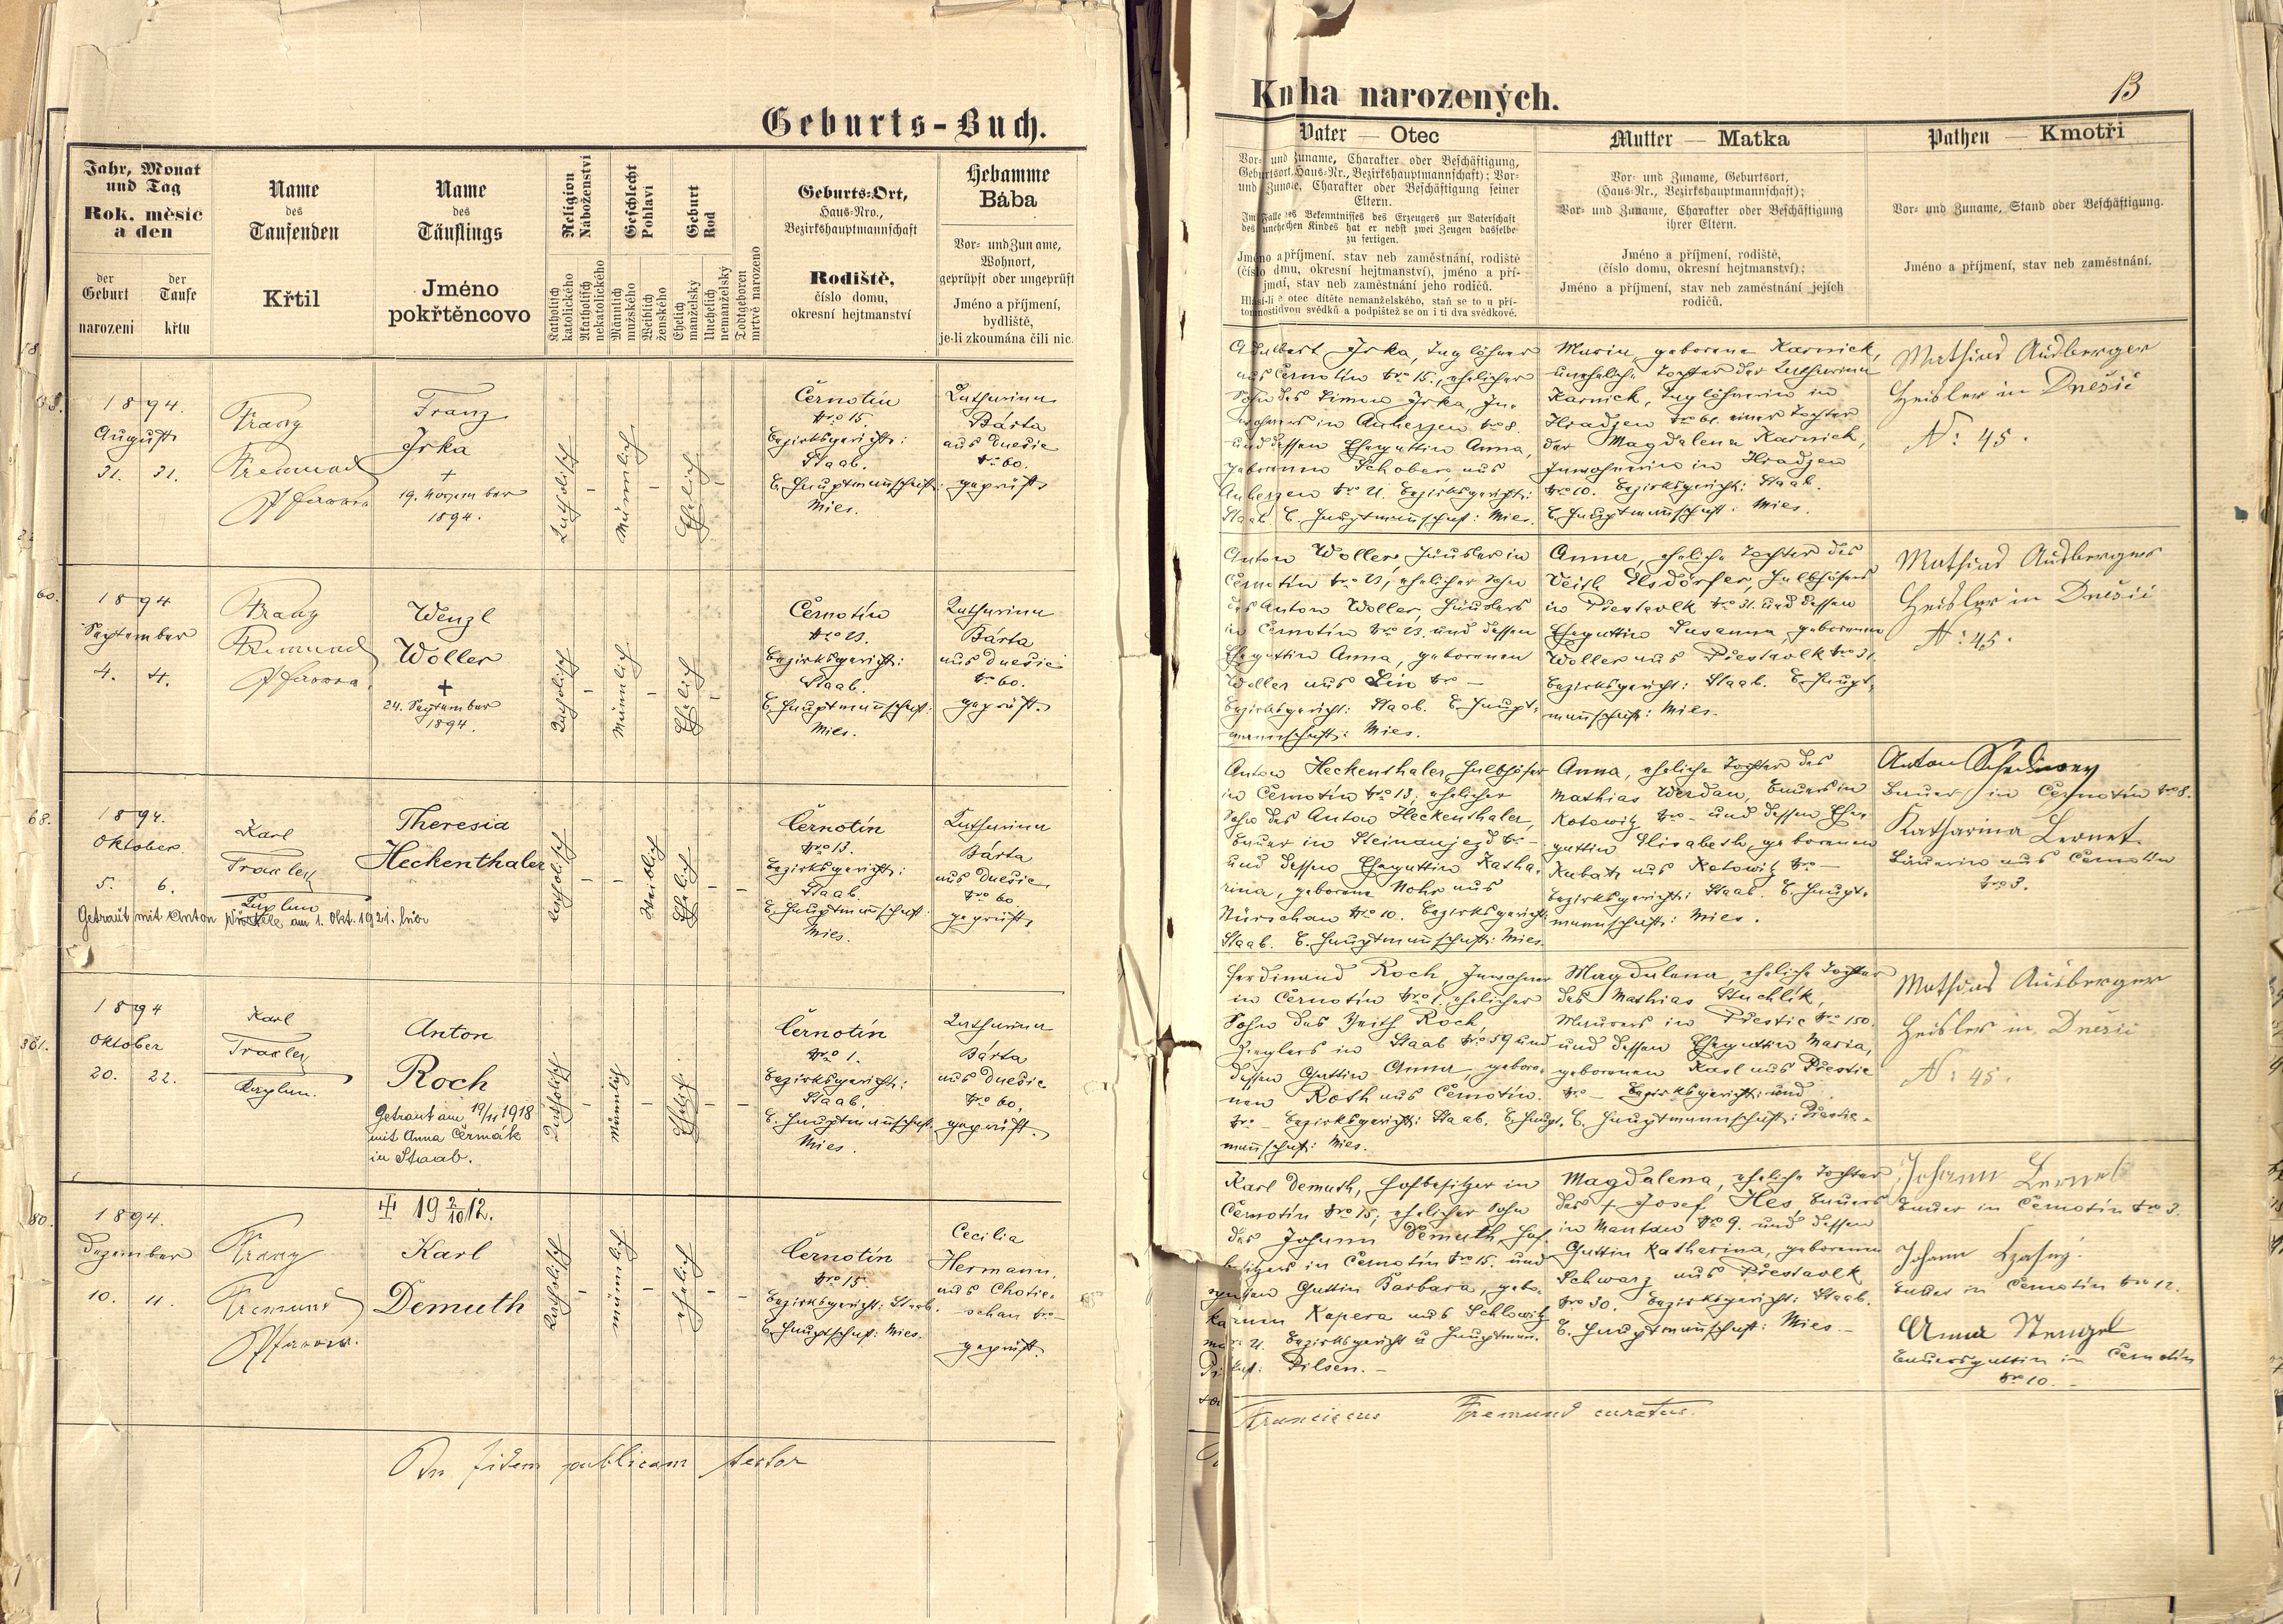 Geburts-Buch.
Jahr, Monat
und Tag
Rok. měsíc
a den
der
Geburt
narozeni
der
Taufe
křtu
Name
des
Taufenden
Křtil
Name
des
Täuflings
Jméno
pokřtěncovo
Religion
Náboženství
Katholisch
katolického
Akatholisch
nekatolického
Geschlecht
Pohlaví
Männlich
mužského
Weiblich
ženského
Geburt
Rod
Ehelich
manželský
Unehelich
nemanželský
Todtgeboren
mrtvě narozeno
Geburts-Ort,
Haus-Nro.,
Bezirkshauptmannschaft
Rodiště,
číslo domu,
okresní hejtmanství
Hebamme
Bába
Vor- und Zuname,
Wohnort,
geprüft oder ungeprüft
Jméno a příjmení,
bydliště,
je-li zkoumána čili nic
1894.
August
31. 31.
Franz
Fremund
Pfarrer
Franz
Irka
+
19. November
1894.
Katholisch
-
Männlich
-
Ehelich
-
Černotín
Nro 15.
Bezirksgericht:
Staab.
B. Hauptmannschaft:
Mies.
Katharina
Bárta
aus Dnešic
Nro 60.
geprüft.
60.
1894
September
4. 4.
Franz
Fremund
Pfarrer.
Wenzl
Woller
+
24. September
1894.
Katholisch
-
Männlich
-
Ehelich
-
Černotín
Nro 23.
Bezirksgericht:
Staab.
B. Hauptmannschaft:
Mies.
Katharina
Bárta
aus Dnešic
Nro 60.
geprüft.
68.
1894.
Oktober
5. 6.
Karl
Traxler
Kaplan
Getraut mit Anton am 1. Okt. 1921. hier
Theresia
Heckenthaler
Katholisch
-
-
Weiblich
Ehelich
-
-
Černotín
Nro 13.
Bezirksgericht:
Staab.
B. Hauptmannschaft:
Mies.
Katharina
Bárta
aus Dnešic
Nro 60
geprüft.
1894
Oktober
20. 22.
Karl
Traxler
Kaplan.
Anton
Roch
Getraut am 19/11 1918
mit Anna Čermák
in Staab.
Katholisch
-
Männlich
-
Ehelich
-
-
Černotín
Nro 1.
Bezirksgericht:
Staab.
B. Hauptmannschaft.
Mies.
Katharina
Bárta
aus Dnešic
Nro 60.
geprüft.
80.
1894.
Dezember
10. 11.
Franz
Fremund
Pfarrer.
19 2/10 12.
Karl
Demuth
Katholisch
-
männlich
-
ehelich
-
-
Černotín
Nro 15.
Bezirksgericht: Staab.
B. Hauptschaft: Mies.
Cecilia
Hermann,
aus Chotie-
schau Nro —
geprüft.
In fidem publicam testor
Kniha narozených.
13
Vater — Otec
Vor- und Zuname, Charakter oder Beschäftigung,
Geburtsort, Haus-Nr., Bezirkshauptmannschaft); Vor-
und Zuname, Charakter oder Beschäftigung seiner
Eltern.
Im Falle des Bekenntnisses des Erzeugers zur Vaterschaft
des unehelichen Kindes hat er nebst zwei Zeugen dasselbe
zu fertigen.
Jméno a příjmení, stav neb zaměstnání, rodiště
(číslo domu, okresní hejtmanství), jméno a pří-
jmení, stav neb zaměstnání jeho rodičů.
Hlásí-li se otec dítěte nemanželského, staň se to u pří-
tomnosti dvou svědků a podpištež se on i ti dva svědkové.
Mutter — Matka
Vor- und Zuname, Geburtsort,
(Haus-Nr., Bezirkshauptmannschaft);
Vor- und Zuname, Charakter oder Beschäftigung
ihrer Eltern.
Jméno a příjmení, rodiště,
(číslo domu, okresní hejtmanství);
Jméno a příjmení, stav neb zaměstnání jejich
rodičů.
Pathen — Kmotři
Vor- und Zuname, Stand oder Beschäftigung.
Jméno a příjmení, stav neb zaměstnání.
Adalbert Irka, Taglöhner
aus Černotín Nro 15., ehelicher
Sohn des Simon Irka, In-
wohners in Auherzen Nro 8.
und dessen Ehegattin Anna,
geborenen Schober aus
Auherzen Nro 21. Bezirksgericht:
Staab B. Hauptmannschaft: Mies.
Maria, geborene Karnick,
uneheliche Tochter der Katharina
Karnick, Taglöhnerin in
Hradzen Nro 61. einer Tochter
der Magdalena Karnick,
Inwohnerin in Hradzen
Nro 10. Bezirksgericht: Staab.
B. Hauptmannschaft: Mies.
Mathias Ausberger
Heisler in Dnešic
N: 45.
Anton Woller, Häusler in
Černotín Nro 23, ehelicher Sohn
des Anton Woller, Häuslers
in Černotín Nro 23. und dessen
Ehegattin Anna, geborenen
Woller aus Lin Nro —
Bezirksgericht: Staab. B. Haupt-
mannschaft: Mies.
Anna, eheliche Tochter des
Veitl Elsdörfer, Halbhöfers
in Přestavlk Nro 31. und dessen
Ehegattin Susanna, geborenen
Woller aus Přestavlk Nro 31.
Bezirksgericht: Staab. B. Haupt-
mannschaft: Mies.
Mathias Ausberger
Heisler in Dnešic
N: 45.
Anton Heckenthaler, Halbhöfer
in Černotín Nro 13, ehelicher
Sohn des Anton Heckenthaler,
Bauer in Steinaujezd Nro —
und dessen Ehegattin Katha-
rina, geborene Mohr aus
Nürschan Nro 10. Bezirksgericht:
Staab. B. Hauptmannschaft: Mies.
Anna, eheliche Tochter des
Mathias Werdan, Bauers in
Kotowitz Nro - und dessen Ehe-
gattin Elisabeth, geborenen
Kubat aus Kotowitz Nro —
Bezirksgericht: Staab. B. Haupt-
mannschaft: Mies.
Anton
Bauer in Černotín Nro 8.
Katharina Lernet
Bäuerin aus Černotín
Nro 3.
Ferdinand Roch, Inwohner
in Černotín Nro 1. ehelicher
Sohn des Veith Roch,
Zieglers in Staab Nro 59 und
dessen Gattin Anna, gebore-
nen Roth aus Černotín.
Nro — Bezirksgericht: Staab. B. Haupt-
mannschaft: Mies.
Magdalena, eheliche Tochter
des Mathias Stuchlík,
Maurers in Přestic Nro 150.
und dessen Ehegattin Maria,
geborenen Karl aus Přestic
Nro — Bezirksgericht: und
B. Hauptmannschaft: Přestic.
Mathias Ausberger
Heisler in Dnešic
N: 45.
Karl Demuth, Hofbesitzer in
Černotín Nro 15, ehelicher Sohn
des Johann Demuth, Hof-
besitzers in Černotín Nro 15. und
dessen Gattin Barbara, gebo-
renen Kapera aus Schlowitz
Nro 21. Bezirksgericht u Hauptmann-
schaft: Pilsen. —
Magdalena, eheliche Tochter
des + Josef Hes, Bauers
in Mantau Nro 9. und dessen
Gattin Katharina, geborenen
Schwarz aus Přestavlk
Nro 30. Bezirksgericht: Staab.
B. Hauptmannschaft: Mies. —
Johann Lernet
Bauer in Černotín Nro 3.
Johann
Bauer in Černotín Nro 12.
Anna Stengel
Bauersgattin in Černotín
Nro 10. —
Franciscus Fremund curatus.